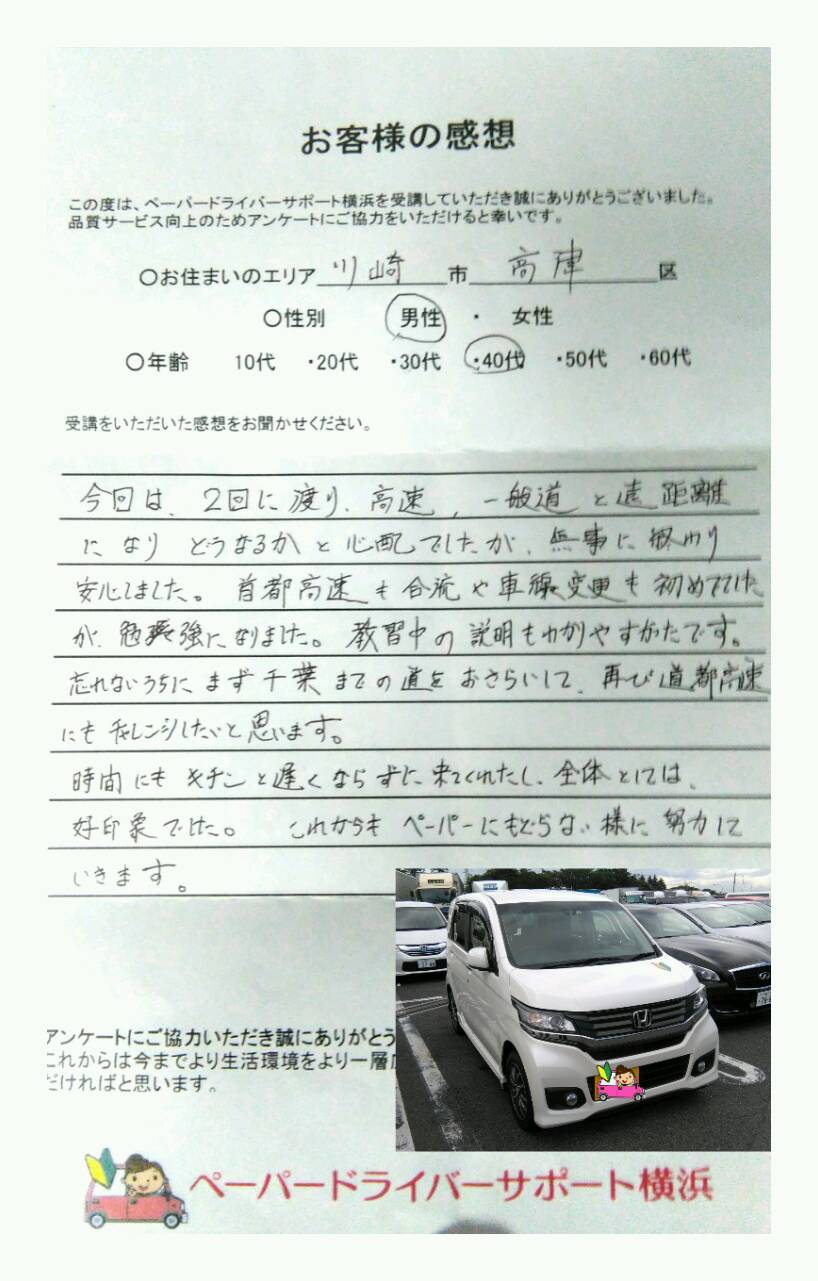 お客様の感想
この度は、ペーパードライバーサポート横浜を受講していただき誠にありがとうございました。
品質サービス向上のためアンケートにご協力をいただけると幸いです。
〇お住まいのエリア 川崎 市 高津 区
〇性別 男性 ・ 女性
〇年齢 10代 ・20代 ・30代 ・40代 ・50代 ・60代
受講をいただいた感想をお聞かせください。
今回は、2回に渡り、高速、一般道と遠距離
になりどうなるかと心配でしたが、無事に終わり
安心しました。首都高速も合流や車線変更も初めてでした
が、勉強になりました。教習中の説明もわかりやすかたです。
忘れないうちにまず千葉までの道をおさらいして、再び道都高速
にもチャレンジしたいと思います。
時間にもキチンと遅くならずに来てくれたし、全体としては、
好印象でした。これからもペーパーにもどらない様に努力して
いきます。
アンケートにご協力いただき誠にありがとう
これからは今までより生活環境をより一層
だければと思います。
ペーパードライバーサポート横浜